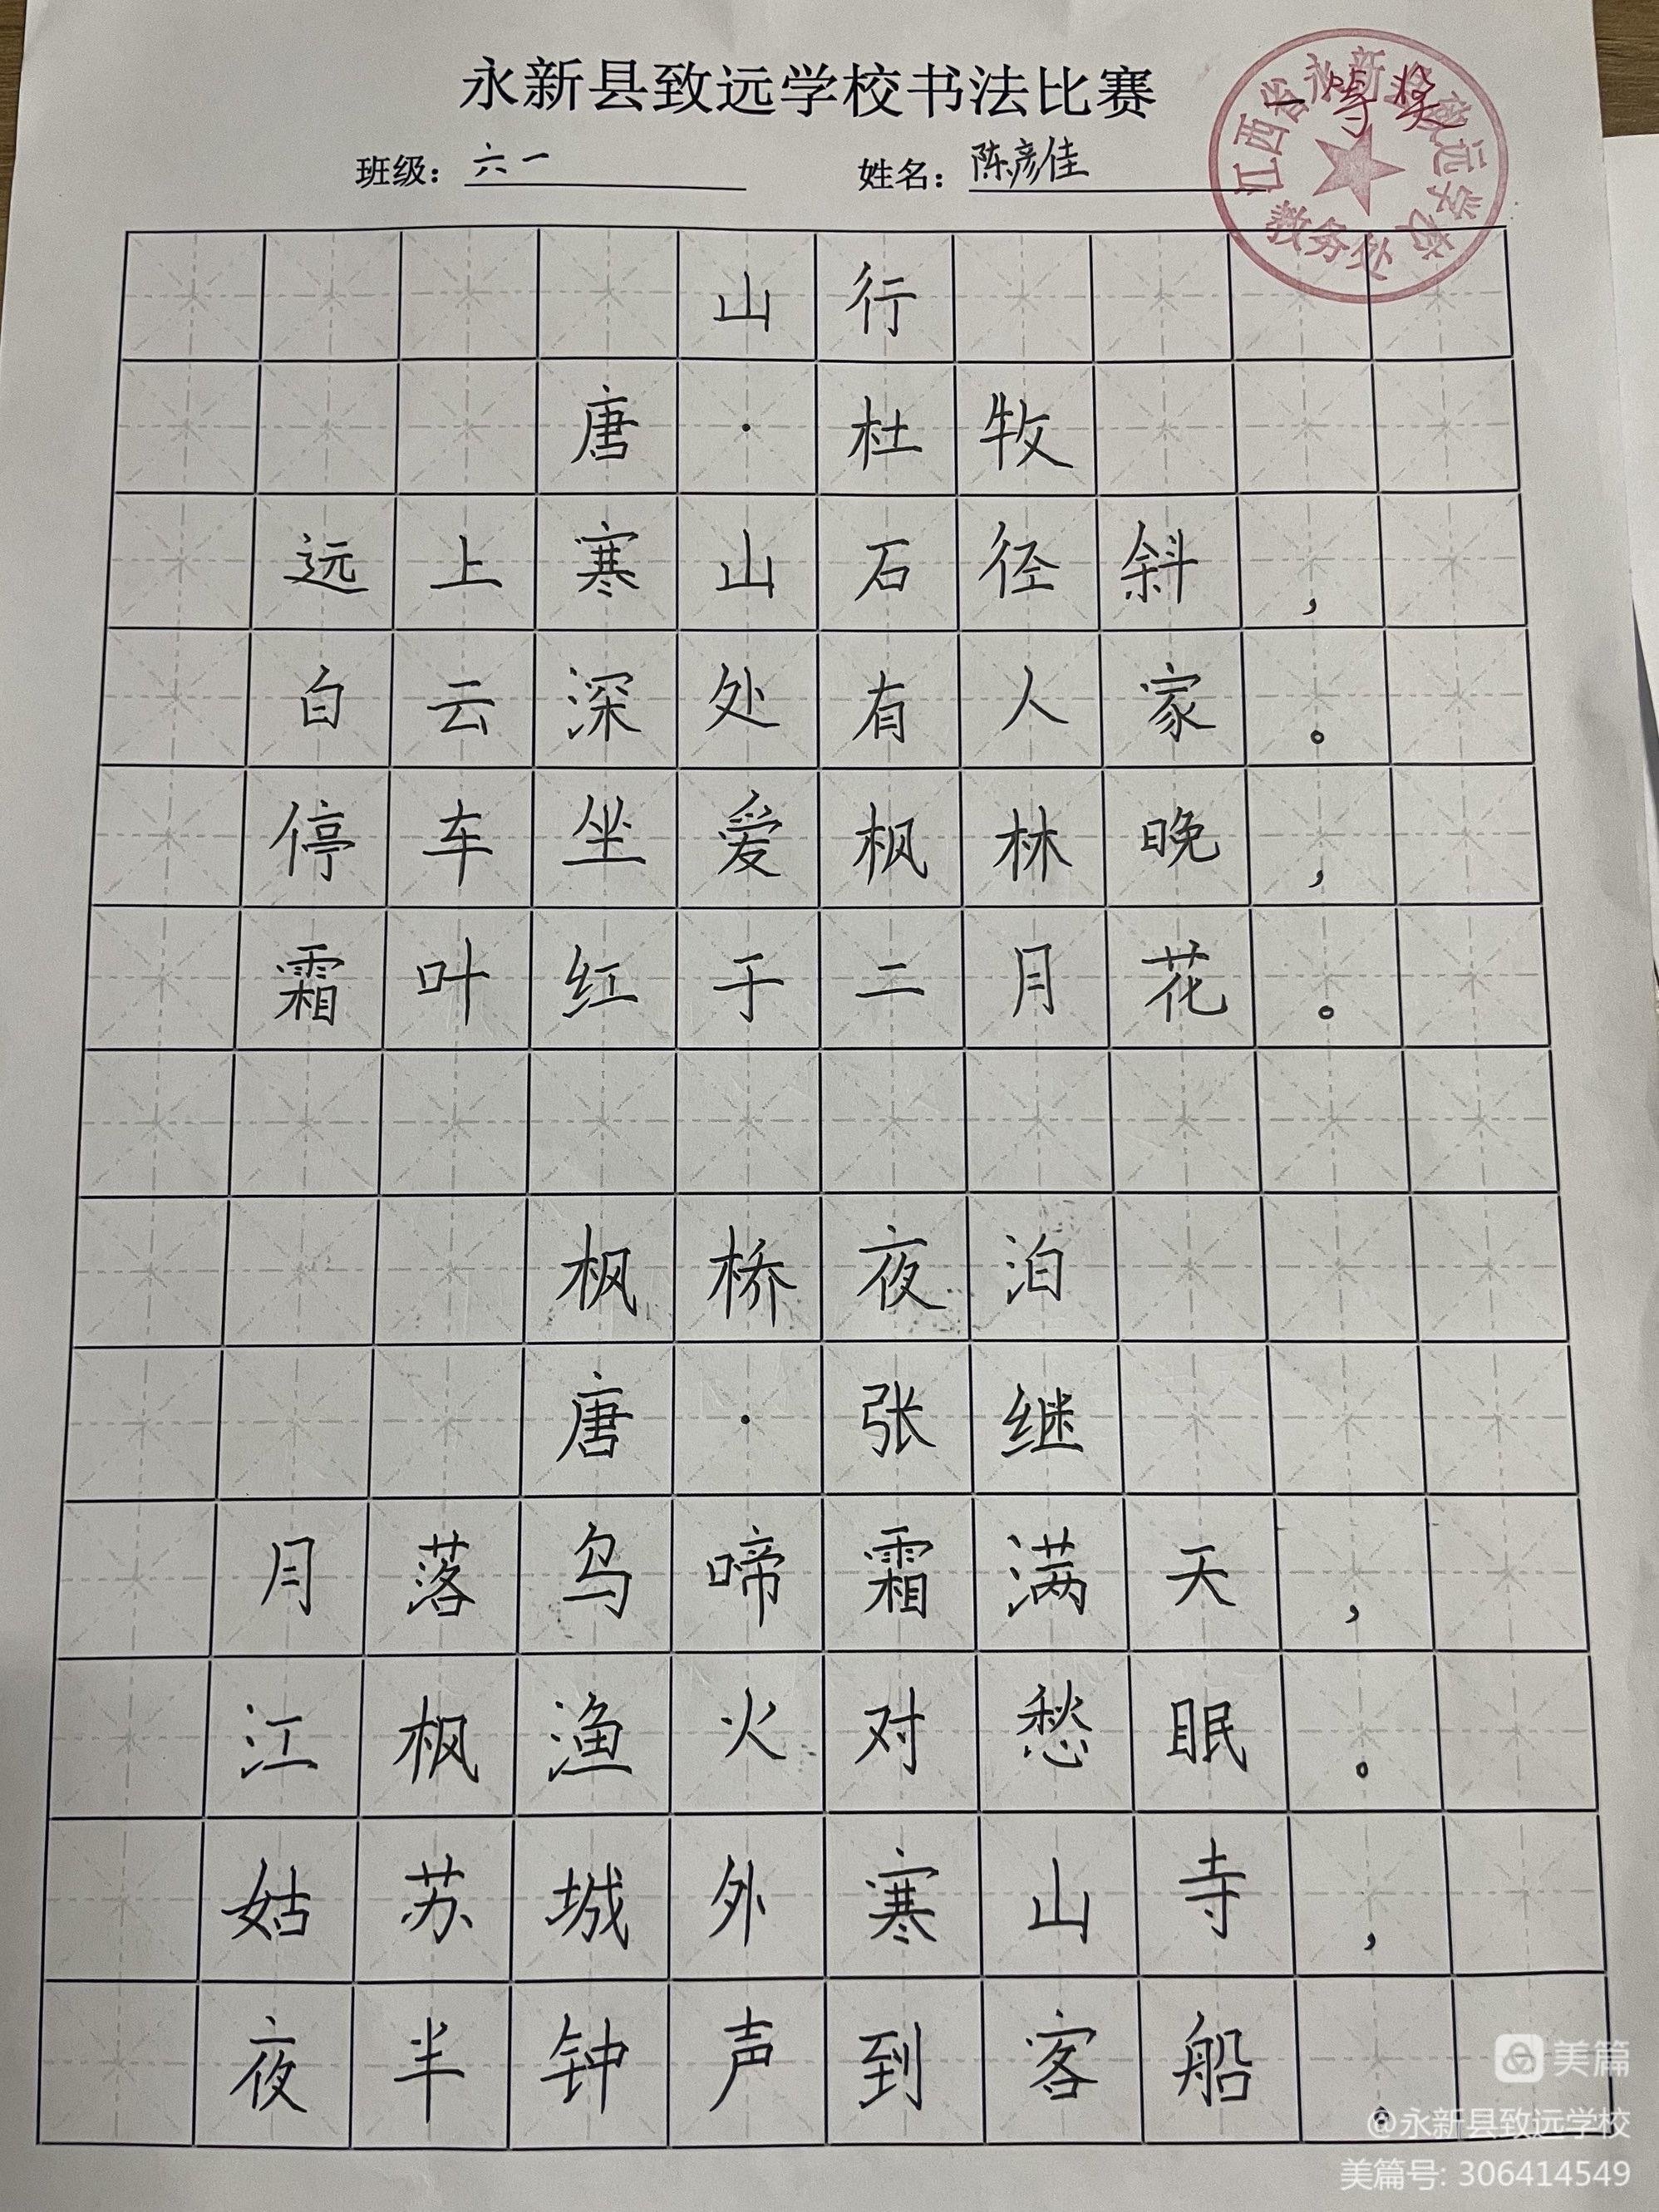 永新县致远学校书法比赛
一等奖
班级：六一 姓名：陈彦佳
江西省永新县致远学校
教务处
山行
唐·杜牧
远上寒山石径斜，
白云深处有人家。
停车坐爱枫林晚，
霜叶红于二月花。
枫桥夜泊
唐·张继
月落乌啼霜满天，
江枫渔火对愁眠。
姑苏城外寒山寺，
夜半钟声到客船。
美篇
@永新县致远学校
美篇号: 306414549